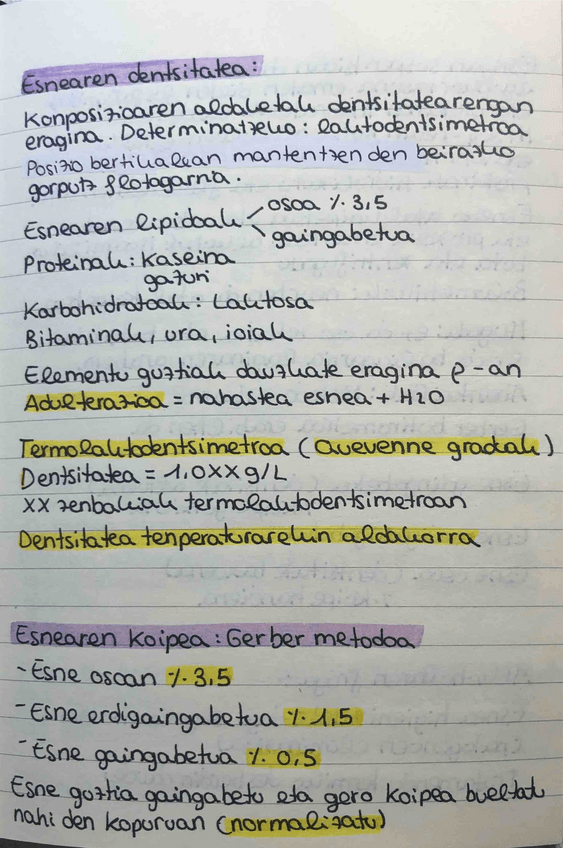 Esnearen dentsitatea:
Konposizioaren aldaketak dentsitatearengan
eragina. Determinatzeko: laktodentsimetroa
Posizio bertikalean mantentzen den beirazko
gorputz flotagarria.
Esnearen lipidoak < osoa %3,5
gaingabetua
Proteinak: kaseina
gazuri
Karbohidratoak: Laktosa
Bitaminak, ura, ioiak
Elementu guztiak dauzkate eragina ρ-an
Adulterazioa = nahastea esnea + H2O
Termolaktodentsimetroa (Quevenne gradak)
Dentsitatea = 1,0XX g/L
XX zenbakiak termolaktodentsimetroan
Dentsitatea tenperaturarekin aldakorra
Esnearen koipea: Gerber metodoa
- Esne osoan %3,5
- Esne erdigaingabetua %1,5
- Esne gaingabetua %0,5
Esne guztia gaingabetu eta gero koipea bueltatu
nahi den kopuruan (normalizatu)